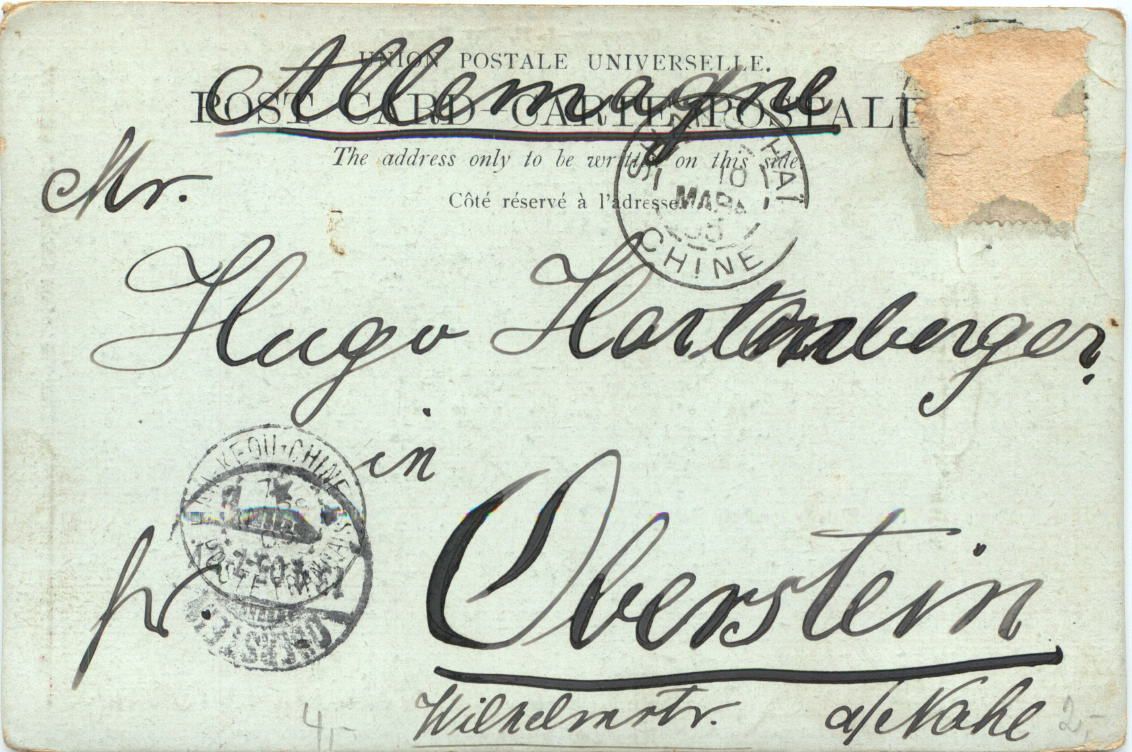 UNION POSTALE UNIVERSELLE.
Allemagne
POST CARD CARTE POSTALE
The address only to be written on this side.
Côté réservé à l'adresse.
CHINE
Mr.
Hugo Hartenberger
in
HAN-KEOU-CHINE
POSTE FRANÇAISE
fr.
Oberstein
Wilhelmstr. a/Nahe
4,- 2,-